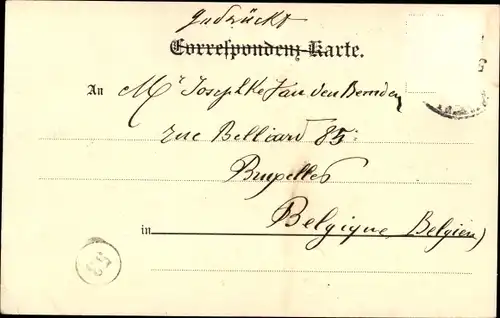 Gedrückt
Correspondenz-Karte.
An Mr Joseph van den Bemden
rue Belliard 85.
Bruxelles
in Belgique, Belgien)
53